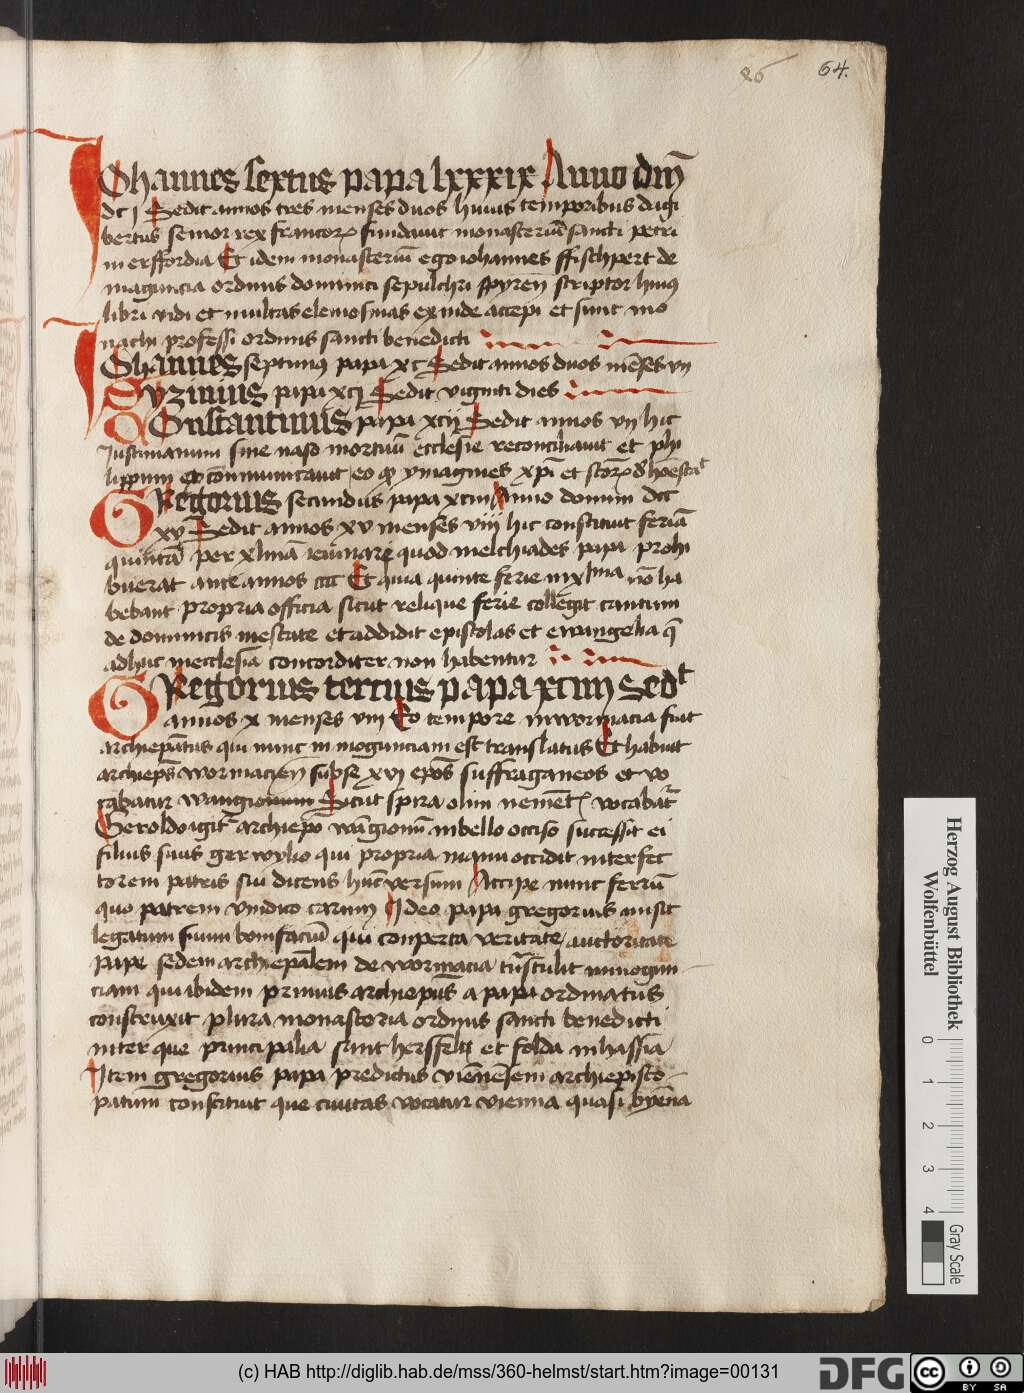 86 64.
Johannes sextus papa lxxxix Anno dm̄
dcj Sedit annos tres menses duos huius temporibus dagi
bertus senior rex francorꝝ fundauit monasteriū sancti petri
in erffordia Et idem monasteriū ego iohannes ffischpert de
maguncia ordinis dominici sepulchri spyreñ scriptor huius
libri vidi et multas elemosinas exinde accepi et sunt mo
nachi professi ordinis sancti benedicti
Johannes septimus papa xc Sedit annos duos mēses vij
Syzinius papa xcj Sedit viginti dies
Constantinus papa xcij Sedit annos vij hic
Justinianum sine naso mortuū ecclesie reconciliauit et phi
lippum excommunicauit eo ꝙ ymagines xp̄i et sctōꝝ
Gregorius secundus papa xciij Anno domini dcc
xv Sedit annos xv menses viij hic constituit feriā
quintā per xlmā ieiunari quod melchiades papa prohi
buerat ante annos cccc Et quia quinte ferie in xlma nō ha
bebant propria officia sicut relique ferie collegit cantum
de dominicis in estate et addidit epistolas et ewangelia q̄
adhuc in ecclesia concorditer non habentur
Gregorius tercius papa xciiij Sedt
annos x menses viij Eo tempore in wormacia fuit
archiepātus qui nunc in mogunciam est translatus Et habuit
archiepūs wormacieñ sub se xvj epōs suffraganeos et vo
cabatur wangionum Sicut spira olim nemetꝝ vocabatr
Geroldo igitr archiepō wāgionū in bello occiso successit ei
filius suus gerwylio qui propria manu occidit interfec
torem patris sui dicens hūc versum Accipe nunc ferrū
quo patrem vindico carum Ideo papa gregorius misit
legatum suum bonifaciū qui conperta veritate auctoritate
pape sedem archiepālem de wormacia trāstulit in mogun
ciam qui ibidem primus archiepūs a papa ordinatus
construxit plura monasteria ordinis sancti benedicti
inter que principalia sunt hersfelt et folda in hassia
Item gregorius papa predictus viēnēsem archiepisco
patum constituit que ciuitas vocatur vienna quasi byēna
Herzog August Bibliothek
Wolfenbüttel
0 1 2 3 4
Gray Scale
(c) HAB http://diglib.hab.de/mss/360-helmst/start.htm?image=00131
DFG
cc BY SA